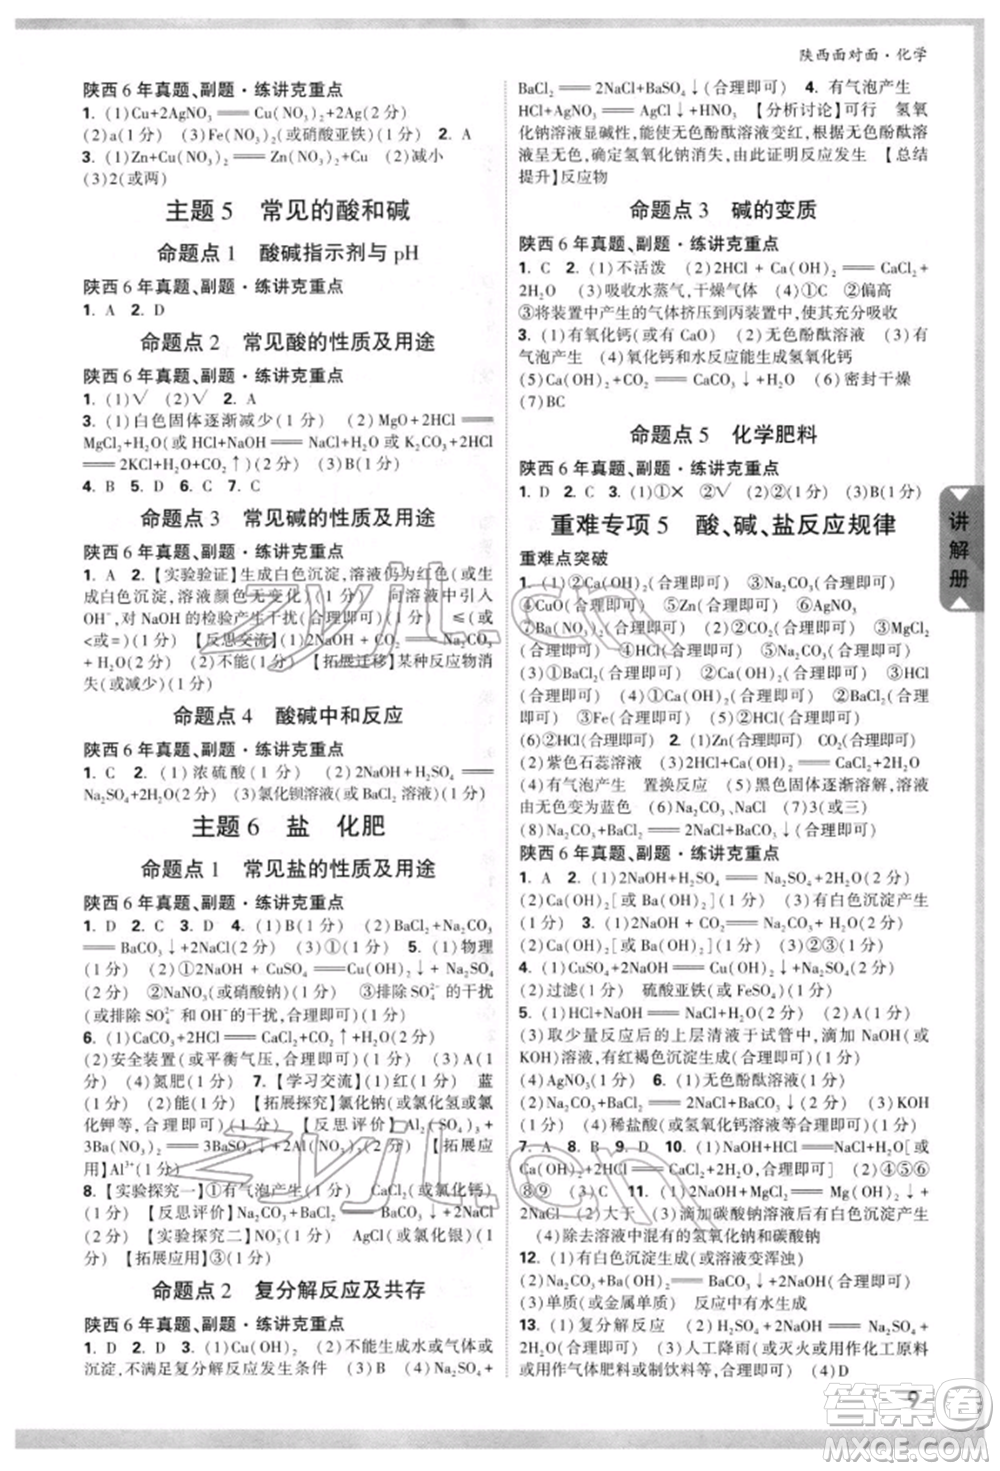 陕西面对面·化学
陕西6年真题、副题·练讲克重点
1. (1)Cu+2AgNO₃══Cu(NO₃)₂+2Ag(2分)
(2)a(1分) (3)Fe(NO₃)₂(或硝酸亚铁)(1分) 2. A
3. (1)Zn+Cu(NO₃)₂══Zn(NO₃)₂+Cu (2)减小
(3)2(或两)
主题5 常见的酸和碱
命题点1 酸碱指示剂与pH
陕西6年真题、副题·练讲克重点
1. A 2. D
命题点2 常见酸的性质及用途
陕西6年真题、副题·练讲克重点
1. (1)√ (2)√ 2. A
3. (1)白色固体逐渐减少(1分) (2)MgO+2HCl══
MgCl₂+H₂O(或HCl+NaOH══NaCl+H₂O或K₂CO₃+2HCl
══2KCl+H₂O+CO₂↑)(2分) (3)B(1分)
4. B 5. D
命题点3 常见碱的性质及用途
陕西6年真题、副题·练讲克重点
1. A 2. 【实验验证】生成白色沉淀,溶液仍为红色(或红色
溶液颜色无变化)(1分) 向溶液中引入
OH⁻,对产物的检验有干扰(1分) ≤(或
<或=)(1分) 【反思交流】(1)2NaOH+CO₂══Na₂CO₃
+H₂O(2分) (2)不能(1分) 【拓展迁移】某种反应物消
失(或减少)(1分)
命题点4 酸碱中和反应
陕西6年真题、副题·练讲克重点
1. C 2. (1)浓硫酸(1分) (2)2NaOH+H₂SO₄══
Na₂SO₄+2H₂O(2分) (3)氯化钡溶液(或BaCl₂溶液)(1分)
主题6 盐 化肥
命题点1 常见盐的性质及用途
陕西6年真题、副题·练讲克重点
1. D 2. C 3. D 4. (1)D(1分) (2)BaCl₂+Na₂CO₃
══BaCO₃↓+2NaCl(2分) (3)①(1分) 5. (1)物理
(1分) (2)①2NaOH+CuSO₄══Cu(OH)₂↓+Na₂SO₄
(2分) ②NaNO₃(或硝酸钠)(1分) ③排除SO₄²⁻的干扰
(或排除SO₄²⁻和OH⁻的干扰,合理即可)(1分)
6. (1)CaCO₃+2HCl══CaCl₂+CO₂↑+H₂O(2分)
(2)安全装置(或平衡气压,合理即可)(1分) (3)A(1分)
(4)氮肥(1分) 7. 【学习交流】(1)红(1分) 蓝
(1分) (2)能(1分) 【拓展探究】氯化钠(或氯化氢或氯
化钾等,合理即可)(1分) 【反思评价】Al₂(SO₄)₃+
3Ba(NO₃)₂══3BaSO₄↓+2Al(NO₃)₃(2分) 【拓展应
用】Al³⁺(1分)
8. 【实验探究一】①有气泡产生(1分) CaCl₂(或氯化钙)
(1分) 【反思评价】Na₂CO₃+BaCl₂══BaCO₃↓+2NaCl
(2分) 【实验探究二】NO₃⁻(1分) AgCl(或氯化银)(1分)
【拓展应用】③(1分)
命题点2 复分解反应及共存
陕西6年真题、副题·练讲克重点
1. D 2. (1)Cu(OH)₂(1分) (2)不能生成水或气体或
沉淀,不满足复分解反应发生条件 (3)B 4. (1)H₂SO₄+
BaCl₂══2NaCl+BaSO₄↓(合理即可) (2)4 有气泡产生
HCl+AgNO₃══AgCl↓+HNO₃ 【分析讨论】可行 氢氧
化钠溶液显碱性,能使无色酚酞溶液变红,根据无色酚酞溶
液呈无色,确定氢氧化钠消失,由此证明反应发生 【总结
提升】反应物
命题点3 碱的变质
陕西6年真题、副题·练讲克重点
1. C 2. (1)不活泼 (2)2HCl+Ca(OH)₂══CaCl₂
+2H₂O (3)①吸收水蒸气,干燥气体 ②偏高
③将装置中产生的气体挤压到丙装置中,使其充分吸收
3. (1)氧化钙(或CaO) (2)无色酚酞溶液 (3)有
气泡产生 (4)氧化钙和水反应能生成氢氧化钙
(5)Ca(OH)₂+CO₂══CaCO₃↓+H₂O (6)密封干燥
(7)BC
命题点5 化学肥料
陕西6年真题、副题·练讲克重点
1. D 2. D 3. (1)①× ②√ (2)②(1分) (3)B(1分)
重难专项5 酸、碱、盐反应规律
重难点突破
1. (1)①②Ca(OH)₂(合理即可) ③Na₂CO₃(合理即可)
④CuO(合理即可) ⑤Zn(合理即可) ⑥AgNO₃
⑦Ba(NO₃)₂(合理即可) ⑧CO₂(合理即可) (2)MgCl₂
(3)①BaCl₂(合理即可) ②HCl
(合理即可) (4)Ca(OH)₂(合理即可) (5)①HCl(合理即
可) ③Fe(合理即可) ⑤HCl(合理即可)
(6)②HCl(合理即可) 2. (1)Zn(合理即可) CO₂(合理即可)
(2)紫色石蕊溶液 (3)2HCl(合理即可)
(4)有气泡产生 置换反应 (5)黑色固体逐渐溶解,溶液
由无色变为蓝色 (6)Na₂CO₃、NaCl (7)3(或三)
(8)Na₂CO₃+BaCl₂══BaCO₃↓+2NaCl(合理即可)
陕西6年真题、副题·练讲克重点
1. A 2. (1)2NaOH+H₂SO₄══Na₂SO₄+2H₂O(2分)
(2)Ca(OH)₂[或Ba(OH)₂](1分) (3)有白色沉淀产生
(1分) 3. (1)2NaOH+CO₂══Na₂CO₃+H₂O(2分)
(2)Ca(OH)₂[或Ba(OH)₂](1分) (3)②③(2分)
(2)过滤(1分) 硫酸亚铁(或FeSO₄)(1分)
5. (1)HCl+NaOH══NaCl+H₂O(2分)
(3)取少量反应后的上层清液于试管中,滴加NaOH(或
KOH)溶液,有红褐色沉淀生成(合理即可)(1分)
(4)AgNO₃(1分) 6. (1)无色酚酞溶液(1分)
(3)KOH
(1分) (4)稀盐酸(或氢氧化钙溶液,合理即可)(1分)
7. A 8. B 9. D
⑧⑨ 10. C 11. (1)2NaOH+MgCl₂══Mg(OH)₂↓
+2NaCl (2)大于 (3)滴加碳酸钠溶液有白色沉淀产生
(4)除去溶液中混有的氢氧化钠和碳酸钠
12. (1)有白色沉淀生成(或溶液变浑浊)
(2)Na₂CO₃+Ba(OH)₂══BaCO₃↓+2NaOH(合理即可)
(3)单质(或金属单质) 反应中有水生成
13. (1)复分解反应 (2)H₂SO₄+BaCl₂══BaSO₄↓
+2HCl(合理即可) (3)人工降雨(或灭火或用作化工原料
或用作气体肥料或制饮料等,合理即可) (4)D
讲解册
9
答案卷
MXQE.COM
zyjl.cn
zyjl.cn